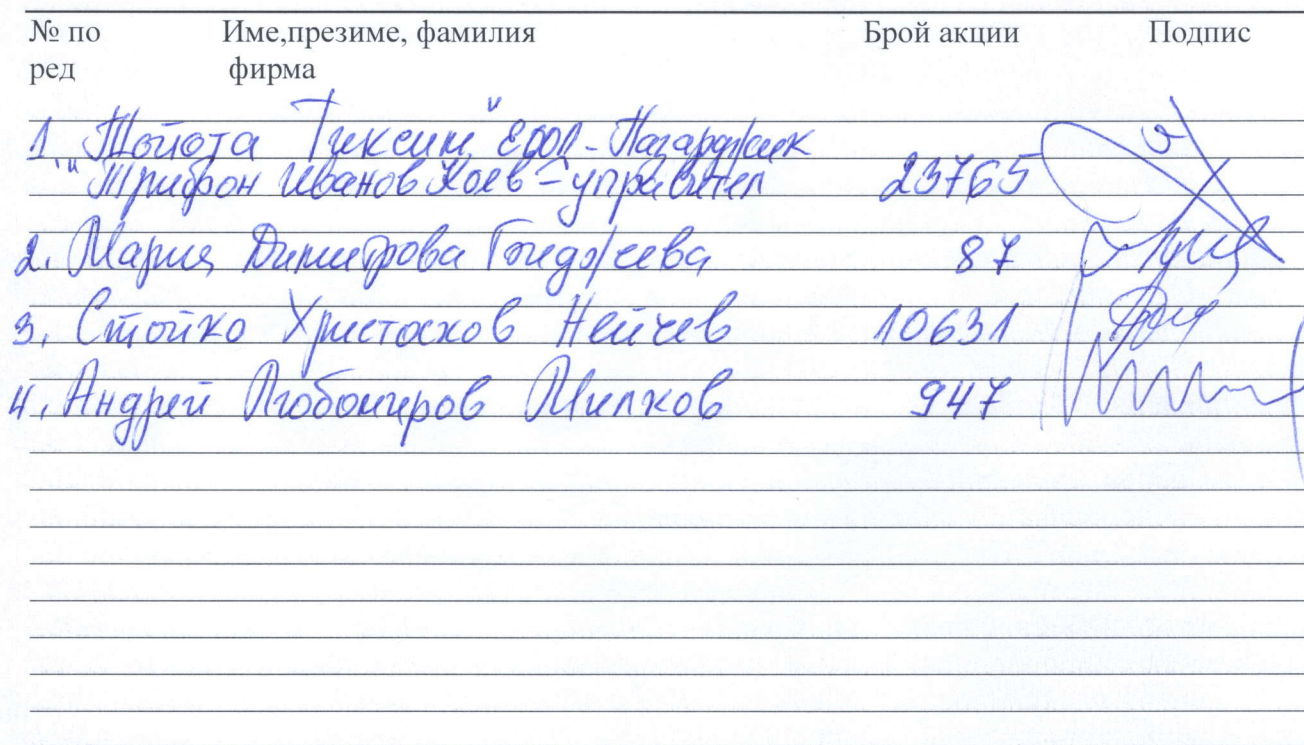 № по Име,презиме, фамилия Брой акции Подпис
ред фирма
1. "Тойота Тиксим" ЕООД - Пазарджик
Трифон Иванов Коев - управител 23765
2. Мария Димитрова 87
3. Стойко Христосков Нейчев 10631
4. Андрей Любомиров Милков 947